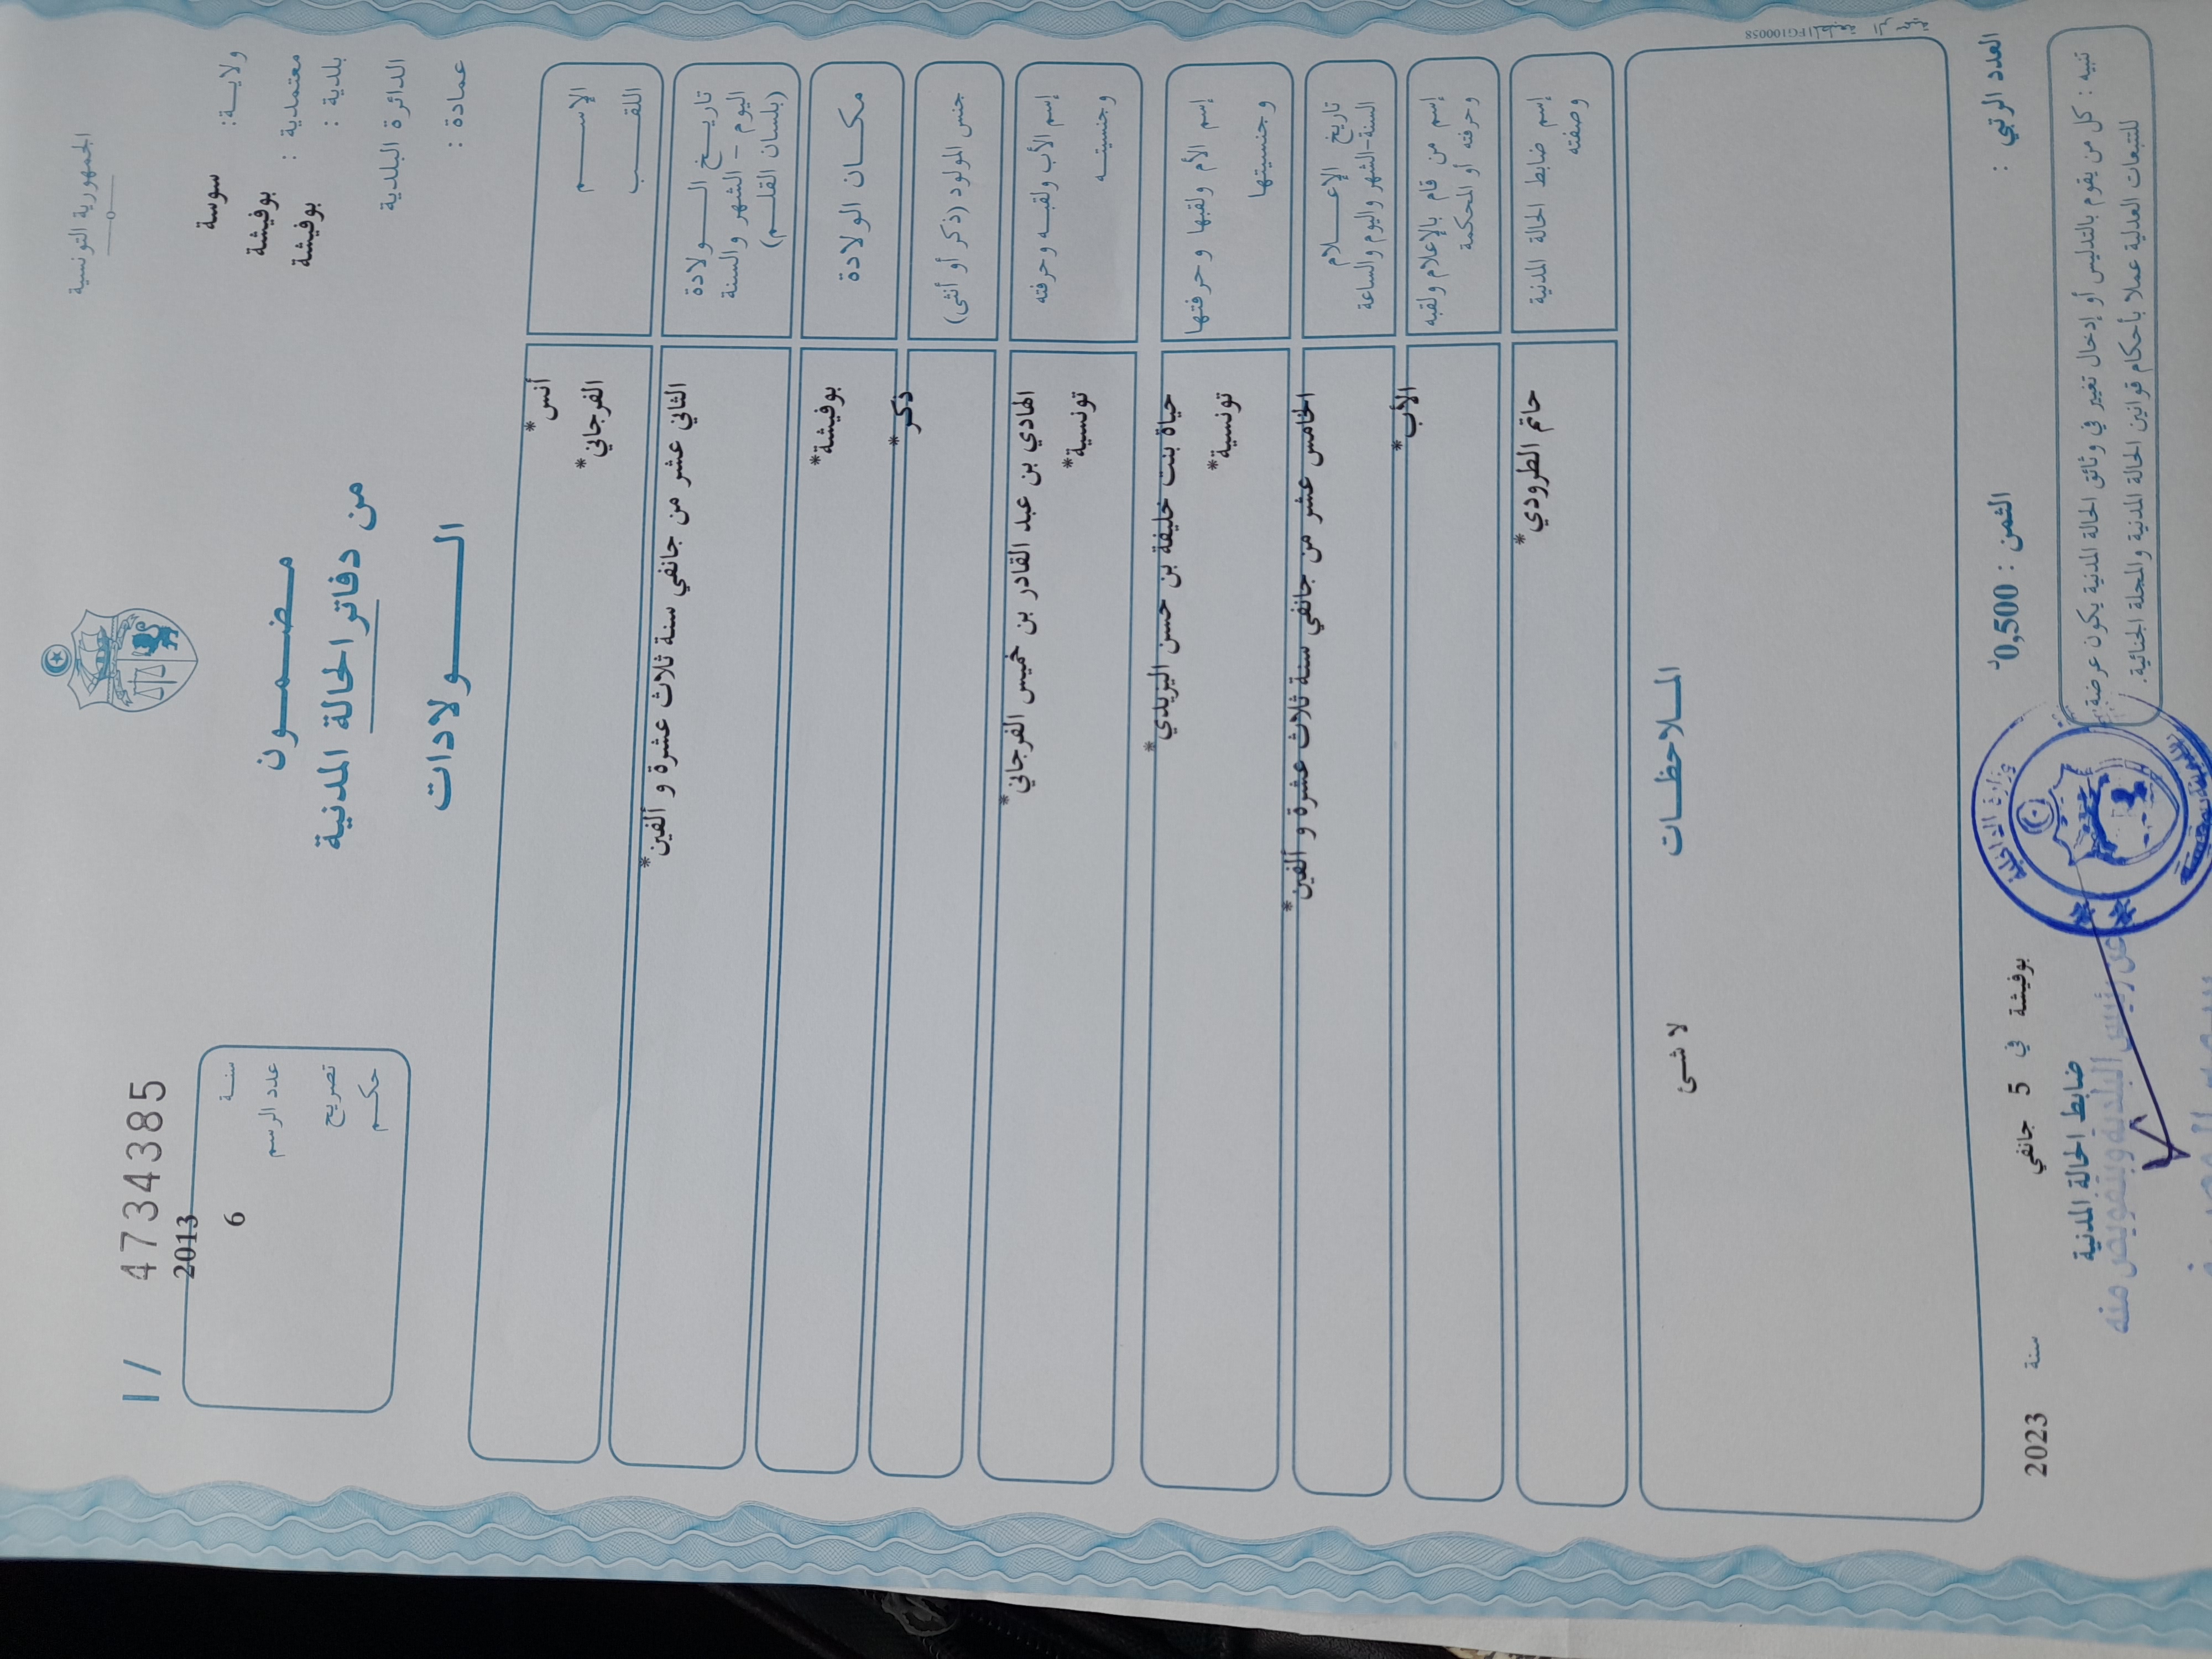 الجمهورية التونسية
ولاية: سوسة
معتمدية : بوفيشة
بلدية : بوفيشة
الدائرة البلدية
عمادة :
مضمون
من دفاتر الحالة المدنية
الولادات
I / 4734385
سنة 2013
عدد الرسم 6
تصريح
حكم
الاسم أنس*
اللقب الفرجاني*
تاريخ الولادة
اليوم - الشهر والسنة
(بلسان القلم)
الثاني عشر من جانفي سنة ثلاث عشرة و ألفين*
مكان الولادة بوفيشة*
جنس المولود (ذكر أو أنثى) ذكر*
إسم الأب ولقبه وحرفته الهادي بن عبد القادر بن خميس الفرجاني*
وجنسيته تونسية*
إسم الأم ولقبها وحرفتها حياة بنت خليفة بن حسن اليزيدي*
وجنسيتها تونسية*
تاريخ الإعلام
السنة-الشهر واليوم والساعة
الخامس عشر من جانفي سنة ثلاث عشرة و ألفين*
إسم من قام بالإعلام ولقبه
وحرفته أو المحكمة
الأب*
إسم ضابط الحالة المدنية
وصفته
حاتم الطرودي*
الملاحظات
لا شئ
العدد الرتبي :
الثمن : 0,500د
بوفيشة في 5 جانفي سنة 2023
ضابط الحالة المدنية
عن رئيس البلدية وبتفويض منه
وزارة الداخلية
تنبيه : كل من يقوم بالتدليس أو إدخال تغيير في وثائق الحالة المدنية يكون عرضة
للتتبعات العدلية عملا بأحكام قوانين الحالة المدنية والمجلة الجنائية.